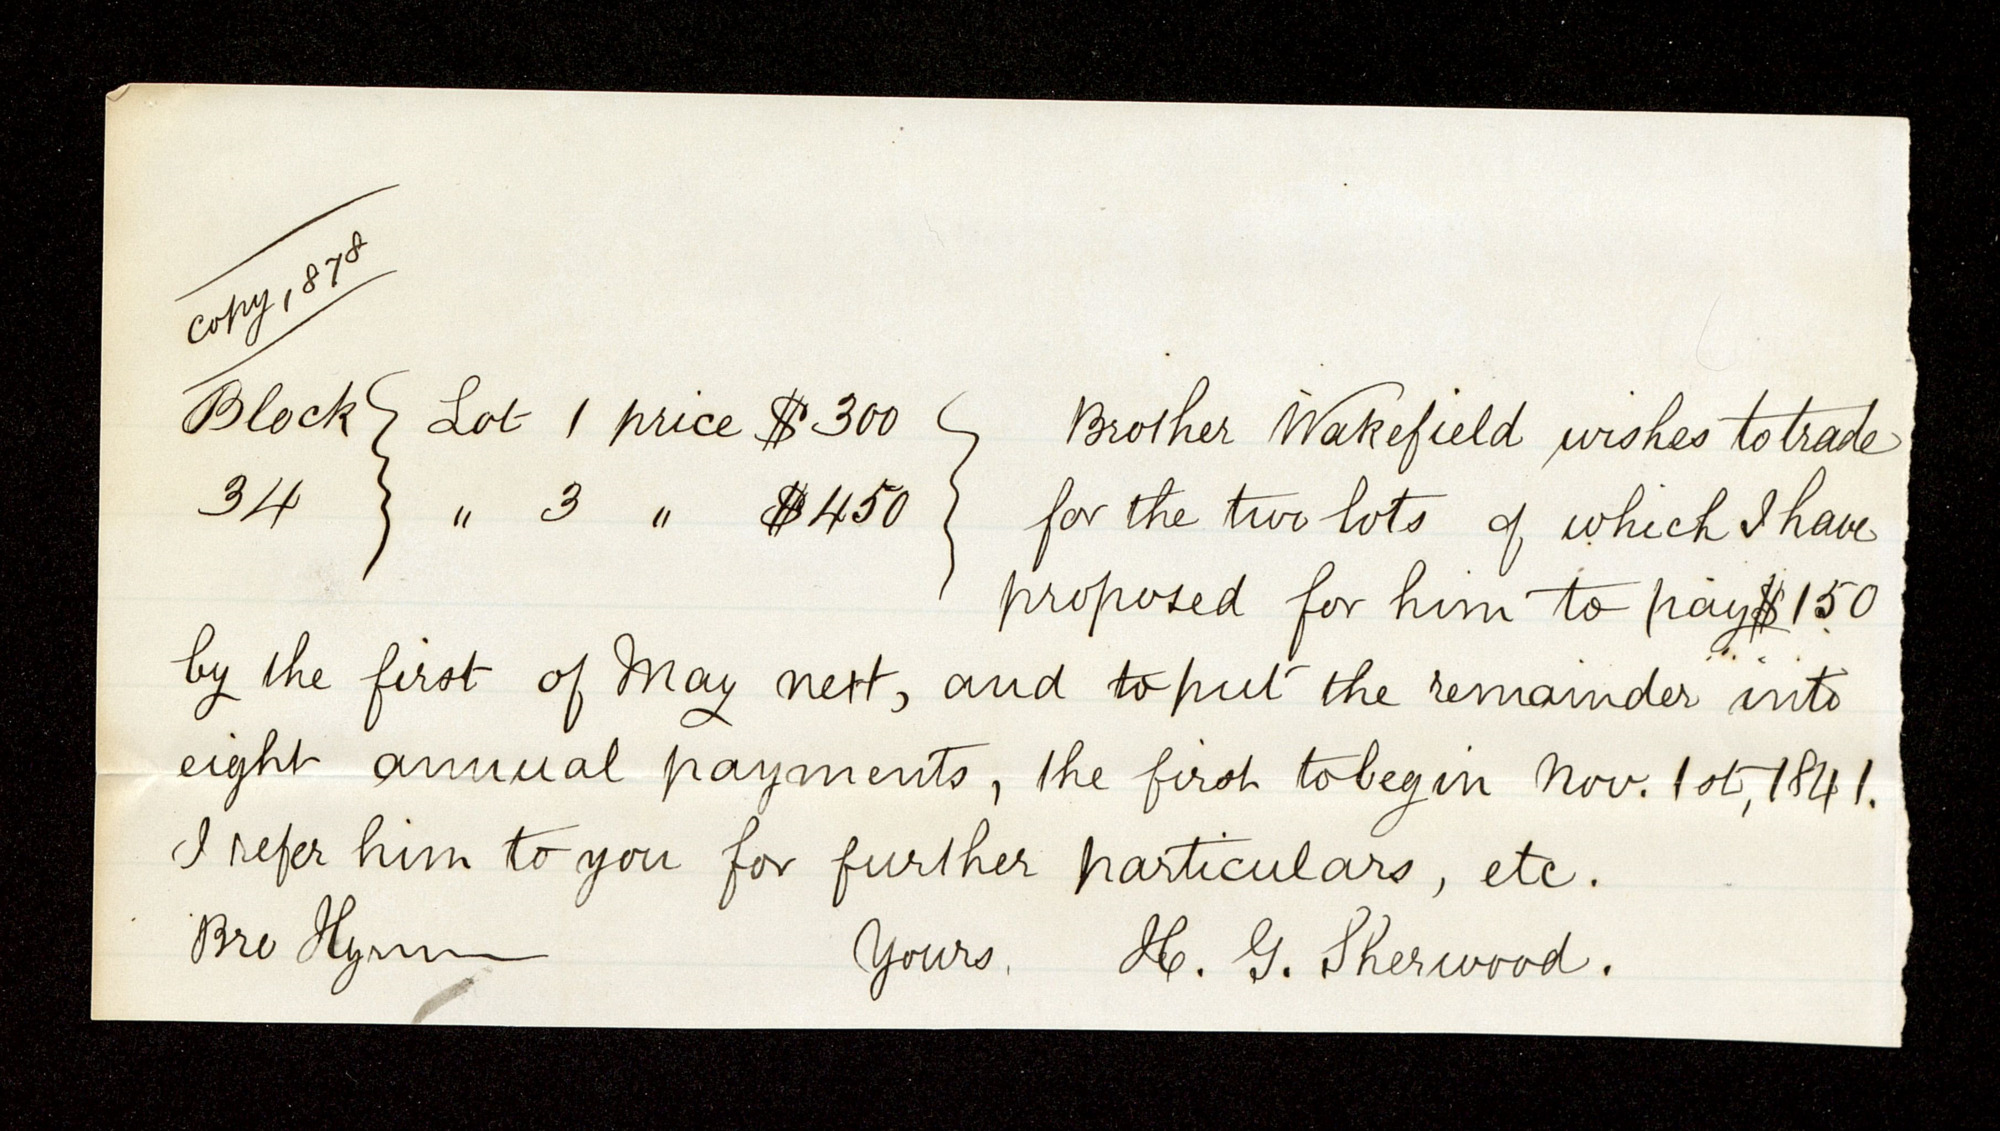 copy, 1878
Block } Lot 1 price $300 } Brother Wakefield wishes to trade
34 } " 3 " $450 } for the two lots of which I have
proposed for him to pay $150
by the first of May next, and to put the remainder into
eight annual payments, the first to begin Nov. 1st, 1841.
I refer him to you for further particulars, etc.
Bro Hyrum Yours, H. G. Sherwood.